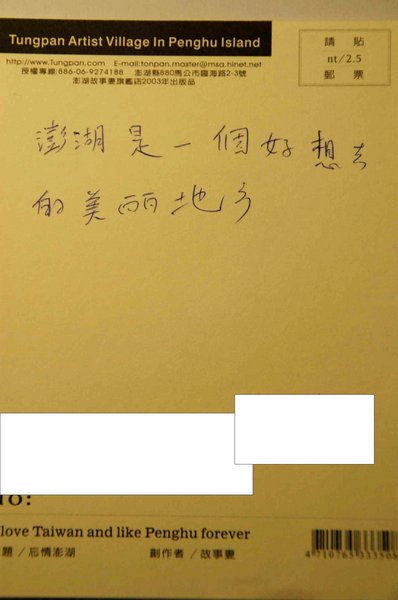 Tungpan Artist Village In Penghu Island
請 貼
nt/2.5
郵 票
http://www.Tungpan.com E-mail:tonpan.master@msa.hinet.net
授權專線:886-06-9274188 澎湖縣880馬公市臨海路2-3號
澎湖故事妻旗艦店2003年出版品
澎湖是一個好想去
的美丽地方
TO:
love Taiwan and like Penghu forever
題／忘情澎湖 創作者／故事妻